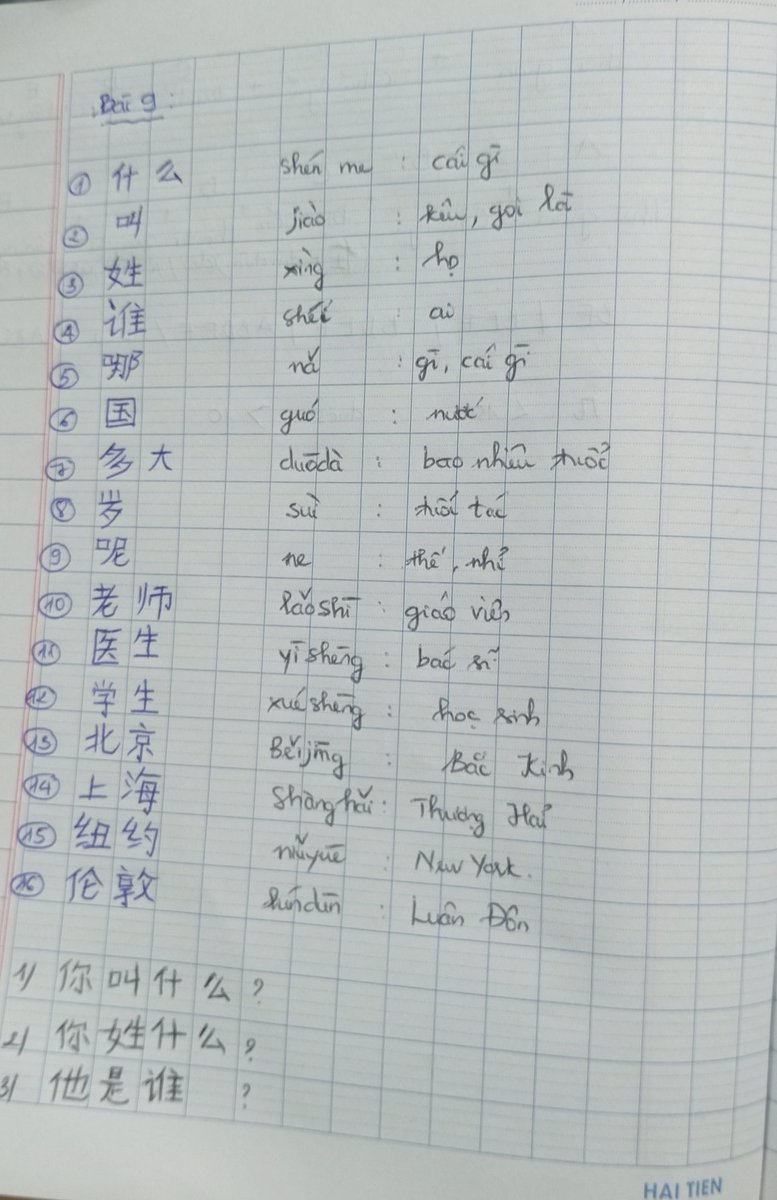 Bài 9:
① 什么 shén me : cái gì
② 叫 jiào : kêu, gọi là
③ 姓 xìng : họ
④ 谁 shéi : ai
⑤ 哪 nǎ : gì, cái gì
⑥ 国 guó : nước
⑦ 多大 duōdà : bao nhiêu tuổi
⑧ 岁 suì : tuổi tác
⑨ 呢 ne : thế, nhỉ
⑩ 老师 lǎoshī : giáo viên
⑪ 医生 yīshēng : bác sĩ
⑫ 学生 xuéshēng : học sinh
⑬ 北京 Běijīng : Bắc Kinh
⑭ 上海 Shànghǎi : Thượng Hải
⑮ 纽约 niǔyuē : New York.
⑯ 伦敦 lúndūn : Luân Đôn
1/ 你叫什么?
2/ 你姓什么?
3/ 他是谁 ?
HẢI TIẾN